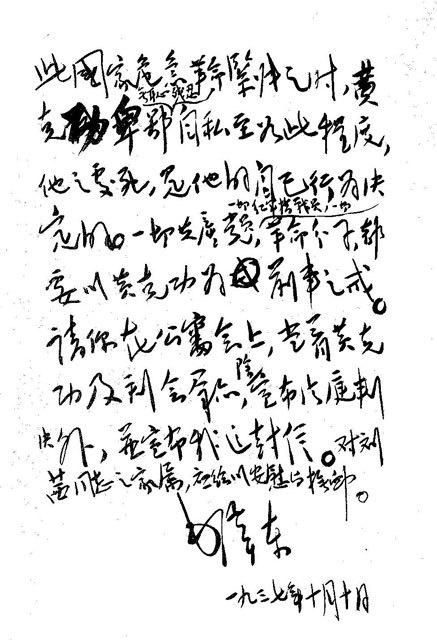 此國家危急革命緊張之时，黄
无恥残忍
克功卑鄙自私至如此程度，
他之處死，是他的自己行为决
一切红軍指战員，一切
定的。一切共產党員，革命分子，都
要以黄克功为前車之戒。
请你在公審会上，当着黄克
功及到会羣众，除宣布法庭判
决外，並宣布我这封信。对刘
茜同志之家属，应给以安慰与抚卹。
毛澤东
一九三七年十月十日